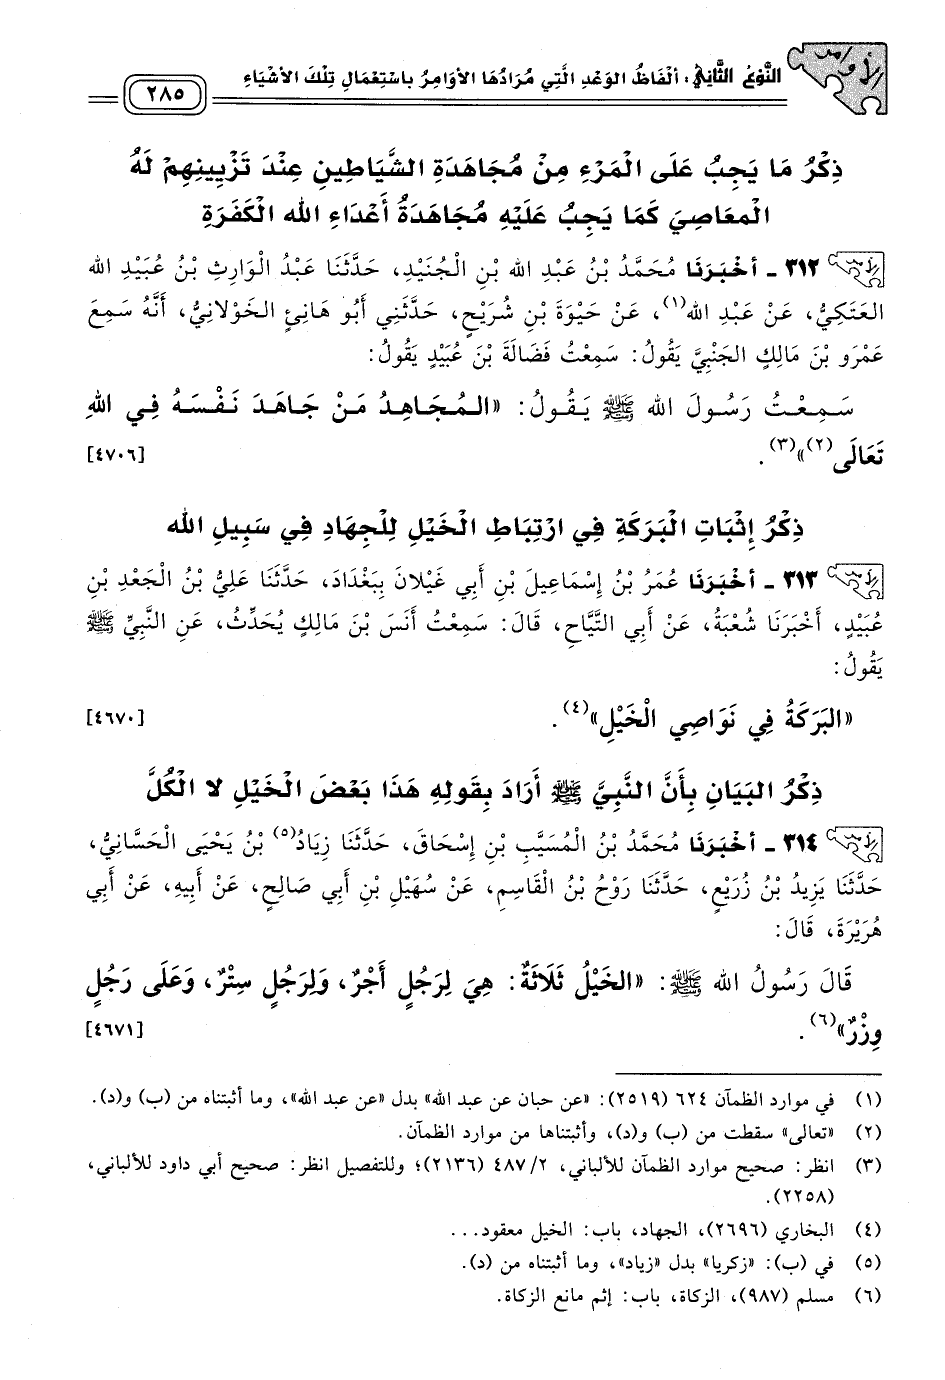 الأوامر
النَّوْعُ الثَّانِي: أَلْفَاظُ الوَعْدِ الَّتِي مُرَادُهَا الأَوَامِرُ بِاسْتِعْمَالِ تِلْكَ الأَشْيَاءِ
٢٨٥
ذِكْرُ مَا يَجِبُ عَلَى الْمَرْءِ مِنْ مُجَاهَدَةِ الشَّيَاطِينِ عِنْدَ تَزْيِينِهِمْ لَهُ
الْمعَاصِيَ كَمَا يَجِبُ عَلَيْهِ مُجَاهَدَةُ أَعْدَاءِ الله الْكَفَرَةِ
٣١٢ - أَخْبَرَنَا مُحَمَّدُ بْنُ عَبْدِ الله بْنِ الْجُنَيْدِ، حَدَّثَنَا عَبْدُ الْوَارِثِ بْنُ عُبَيْدِ الله
العَتَكِيُّ، عَنْ عَبْدِ الله(١)، عَنْ حَيْوَةَ بْنِ شُرَيْحٍ، حَدَّثَنِي أَبُو هَانِئٍ الخَوْلانِيُّ، أَنَّهُ سَمِعَ
عَمْرَو بْنَ مَالِكٍ الجَنْبِيَّ يَقُولُ: سَمِعْتُ فَضَالَةَ بْنَ عُبَيْدٍ يَقُولُ:
سَمِعْتُ رَسُولَ الله ﷺ يَقُولُ: «الْمُجَاهِدُ مَنْ جَاهَدَ نَفْسَهُ فِي اللهِ
تَعَالَى(٢)»(٣). [٤٧٠٦]
ذِكْرُ إِثْبَاتِ الْبَرَكَةِ فِي ارْتِبَاطِ الْخَيْلِ لِلْجِهَادِ فِي سَبِيلِ الله
٣١٣ - أَخْبَرَنَا عُمَرُ بْنُ إِسْمَاعِيلَ بْنِ أَبِي غَيْلانَ بِبَغْدَادَ، حَدَّثَنَا عَلِيُّ بْنُ الْجَعْدِ بْنِ
عُبَيْدٍ، أَخْبَرَنَا شُعْبَةُ، عَنْ أَبِي التَّيَّاحِ، قَالَ: سَمِعْتُ أَنَسَ بْنَ مَالِكٍ يُحَدِّثُ، عَنِ النَّبِيِّ ﷺ
يَقُولُ:
«البَرَكَةُ فِي نَوَاصِي الْخَيْلِ»(٤). [٤٦٧٠]
ذِكْرُ البَيَانِ بِأَنَّ النَّبِيَّ ﷺ أَرَادَ بِقَوْلِهِ هَذَا بَعْضَ الْخَيْلِ لا الْكُلَّ
٣١٤ - أَخْبَرَنَا مُحَمَّدُ بْنُ الْمُسَيَّبِ بْنِ إِسْحَاقَ، حَدَّثَنَا زِيَادُ(٥) بْنُ يَحْيَى الْحَسَّانِيُّ،
حَدَّثَنَا يَزِيدُ بْنُ زُرَيْعٍ، حَدَّثَنَا رَوْحُ بْنُ الْقَاسِمِ، عَنْ سُهَيْلِ بْنِ أَبِي صَالِحٍ، عَنْ أَبِيهِ، عَنْ أَبِي
هُرَيْرَةَ، قَالَ:
قَالَ رَسُولُ الله ﷺ: «الخَيْلُ ثَلاثَةٌ: هِيَ لِرَجُلٍ أَجْرٌ، وَلِرَجُلٍ سِتْرٌ، وَعَلَى رَجُلٍ
وِزْرٌ»(٦). [٤٦٧١]
(١) في موارد الظمآن ٦٢٤ (٢٥١٩): «عن حبان عن عبد الله» بدل «عن عبد الله»، وما أثبتناه من (ب) و(د).
(٢) «تعالى» سقطت من (ب) و(د)، وأثبتناها من موارد الظمآن.
(٣) انظر: صحيح موارد الظمآن للألباني، ٢/ ٤٨٧ (٢١٣٦)؛ وللتفصيل انظر: صحيح أبي داود للألباني،
(٢٢٥٨).
(٤) البخاري (٢٦٩٦)، الجهاد، باب: الخيل معقود...
(٥) في (ب): «زكريا» بدل «زياد»، وما أثبتناه من (د).
(٦) مسلم (٩٨٧)، الزكاة، باب: إثم مانع الزكاة.